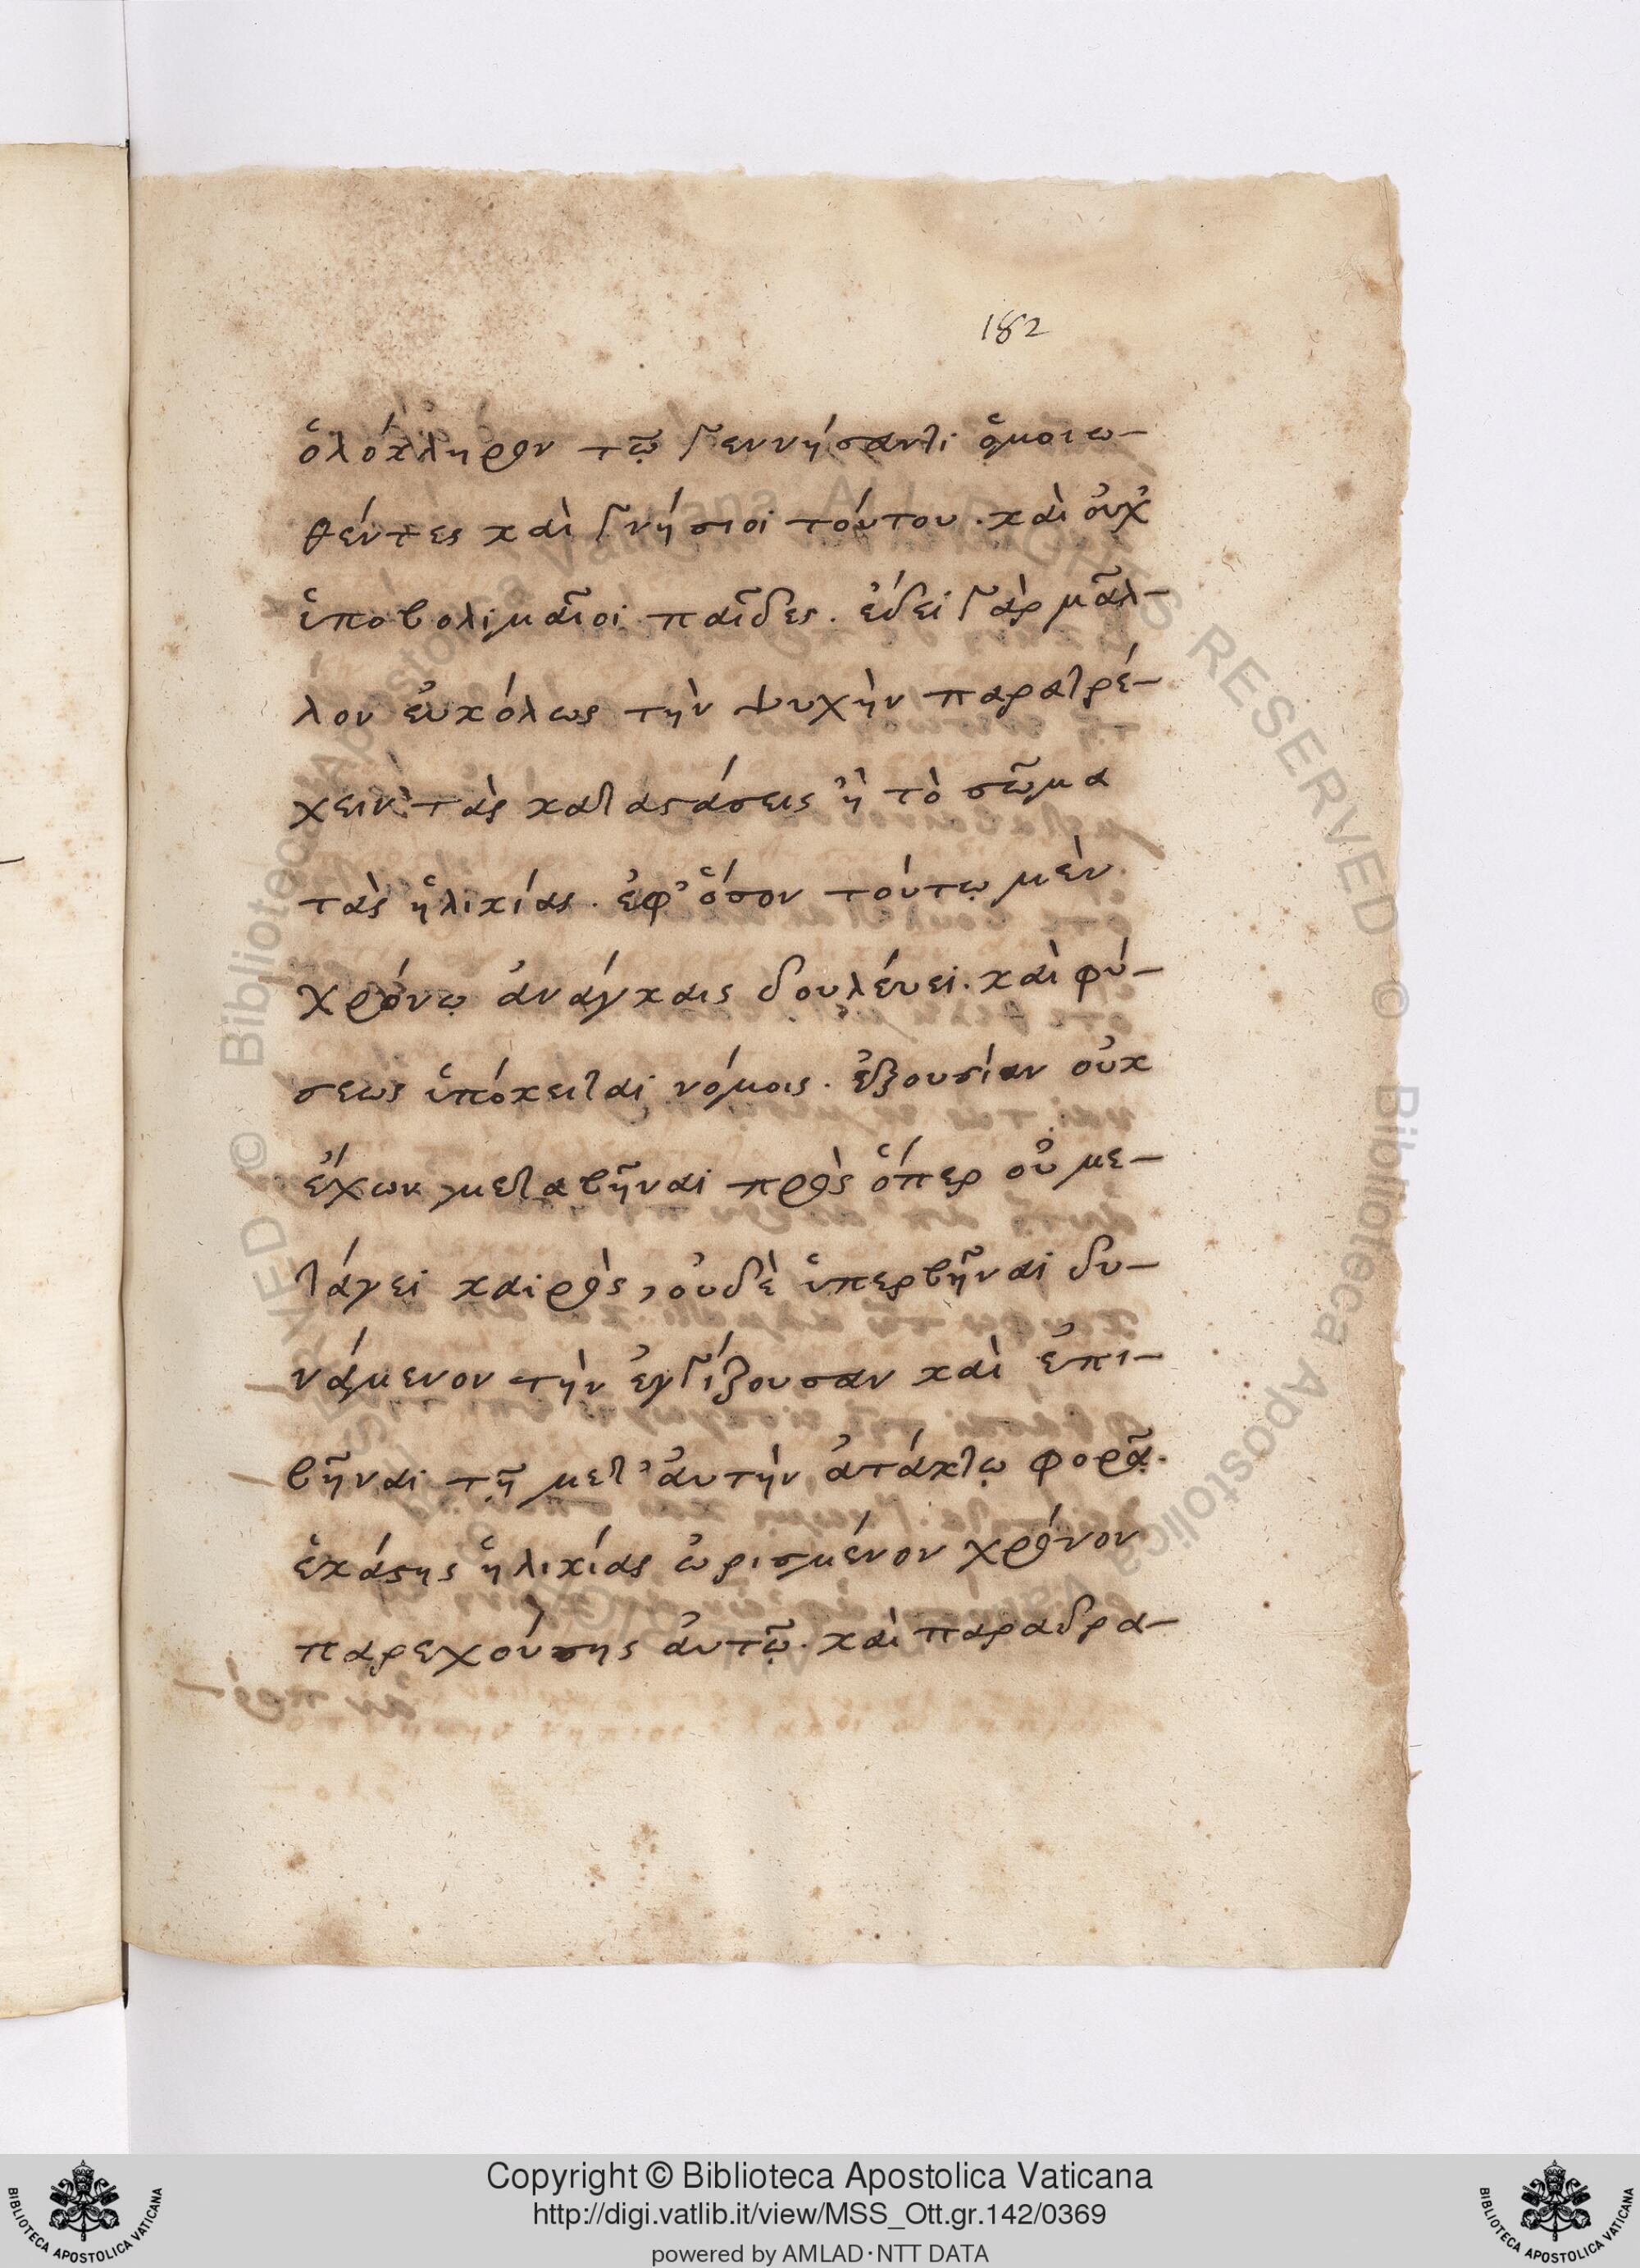 182
ὁλόκληρον τῷ γεννήσαντι ὁμοιω-
θέντες καὶ γνήσιοι τούτου. καὶ οὐχ
ὑποβολιμαῖοι παῖδες. ἔδει γὰρ μᾶλ-
λον εὐκόλως τὴν ψυχὴν παρατρέ-
χειν τὰς καταστάσεις ἢ τὸ σῶμα
τὰς ἡλικίας. ἐφ' ὅσον τούτῳ μὲν
χρόνῳ ἀνάγκαις δουλέυει. καὶ φύ-
σεως ὑπόκειται νόμοις. ἐξουσίαν οὐκ
ἔχων μεταβῆναι πρὸς ὅπερ οὐ με-
τάγει καιρὸς, οὐδὲ ὑπερβῆναι δυ-
νάμενον τὴν ἐγγίζουσαν καὶ ἐπι-
βῆναι τῇ μετ' ἀυτὴν ἀτάκτῳ φορᾷ.
ἑκάστης ἡλικίας ὡρισμένον χρόνον
παρεχούσης ἀυτῷ. καὶ παραδρα-
Copyright © Biblioteca Apostolica Vaticana
http://digi.vatlib.it/view/MSS_Ott.gr.142/0369
powered by AMLAD·NTT DATA
BIBLIOTECA APOSTOLICA VATICANA
BIBLIOTECA APOSTOLICA VATICANA